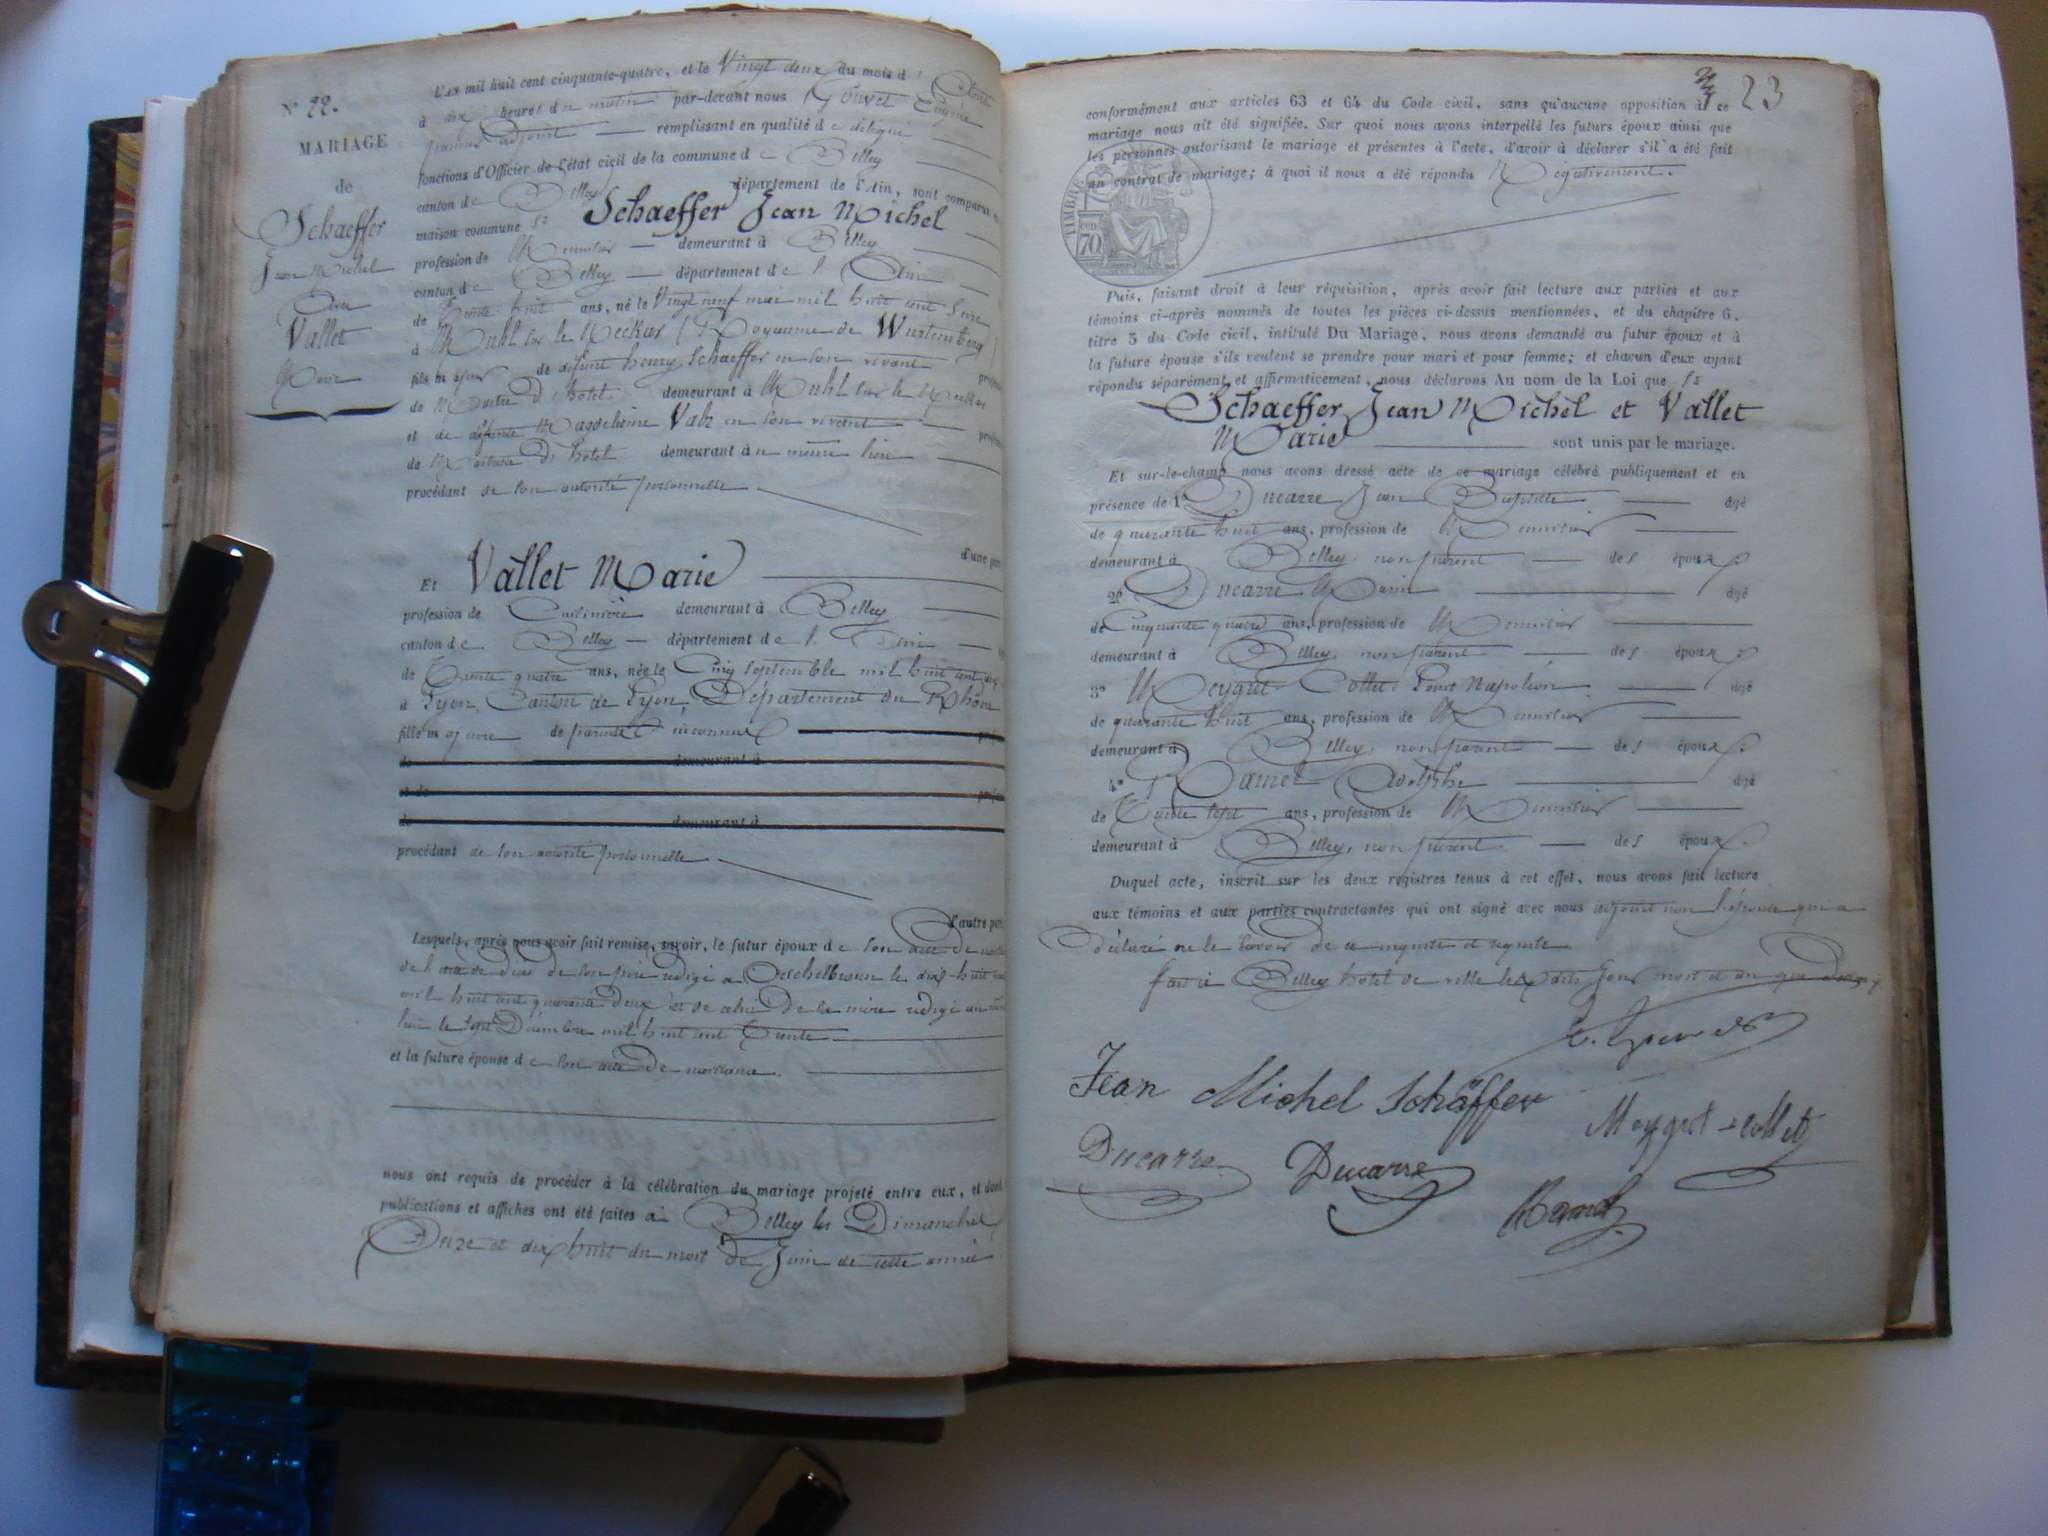 N° 22.
MARIAGE
de
Schaeffer
Jean Michel
Avec
Vallet
Marie
L'AN mil huit cent cinquante-quatre, et le Vingt deux du mois d'Août
à dix heures du matin par-devant nous
premier adjoint remplissant en qualité de délégué
fonctions d'Officier de l'état civil de la commune de Belley
canton de Belley département de l'Ain, sont comparus
maison commune Sr Schaeffer Jean Michel
profession de Menuisier demeurant à Belley
canton de Belley département de l'Ain
de Trente huit ans, né le Vingt neuf mai mil huit cent Seize
à Muhl sur le Neckar (Royaume de Wurtemberg)
fils majeur de défunt henry Schaeffer en son vivant
de Maitre d'hotel demeurant à Muhl sur le Neckar
et de défunte Magdeleine Valz en son vivant
de Maitresse d'hotel demeurant au même lieu
procédant de son autorité personnelle
d'une part
Et Vallet Marie
profession de Cuisinière demeurant à Belley
canton de Belley département de l'Ain
de Trente quatre ans, née le Cinq Septembre mil huit cent
à Lyon, Canton de Lyon, Département du Rhône
fille majeure de parents inconnus
de demeurant à
et de
de demeurant à
procédant de son autorité personnelle
d'autre part
Lesquels, après nous avoir fait remise, savoir, le futur époux de son acte de
de l'acte de décès de son père rédigé a Oeschelbronn le dix-huit
mil huit cent quarante deux et de celui de sa mère rédigé au même
lieu le Sept Décembre mil huit cent Trente
et la future épouse de son acte de naissance.
nous ont requis de procéder à la célébration du mariage projeté entre eux, et dont
publications et affiches ont été faites à Belley les Dimanches
Onze et dix huit du mois de Juin de cette année
23
conformément aux articles 63 et 64 du Code civil, sans qu'aucune opposition à ce
mariage nous ait été signifiée. Sur quoi nous avons interpellé les futurs époux ainsi que
les personnes autorisant le mariage et présentes à l'acte, d'avoir à déclarer s'il a été fait
un contrat de mariage; à quoi il nous a été répondu Négativement.
TIMBRE
70
Puis, faisant droit à leur réquisition, après avoir fait lecture aux parties et aux
témoins ci-après nommés de toutes les pièces ci-dessus mentionnées, et du chapitre 6,
titre 5 du Code civil, intitulé Du Mariage, nous avons demandé au futur époux et à
la future épouse s'ils veulent se prendre pour mari et pour femme; et chacun d'eux ayant
répondu séparément et affirmativement, nous déclarons Au nom de la Loi que Sr
Schaeffer Jean Michel et Vallet
Marie sont unis par le mariage.
Et sur-le-champ nous avons dressé acte de ce mariage célébré publiquement et en
présence de 1° Ducarre Jean Baptiste âgé
de quarante huit ans, profession de Menuisier
demeurant à Belley, non parent des époux.
2° Ducarre Marin âgé
de Cinquante quatre ans, profession de Menuisier
demeurant à Belley, non parent des époux.
3° Meygret Collet Louis Napoléon âgé
de quarante huit ans, profession de Menuisier
demeurant à Belley, non parent des époux.
4° Adolphe âgé
de Trente sept ans, profession de Menuisier
demeurant à Belley, non parent des époux.
Duquel acte, inscrit sur les deux registres tenus à cet effet, nous avons fait lecture
aux témoins et aux parties contractantes qui ont signé avec nous adjoint non l'épouse qui a
Déclaré ne le savoir de ce enquise et requise
fait à Belley hotel de ville les dits jour mois et an que
Jean Michel Schäffer
Meygret Collet
Ducarre Ducarre